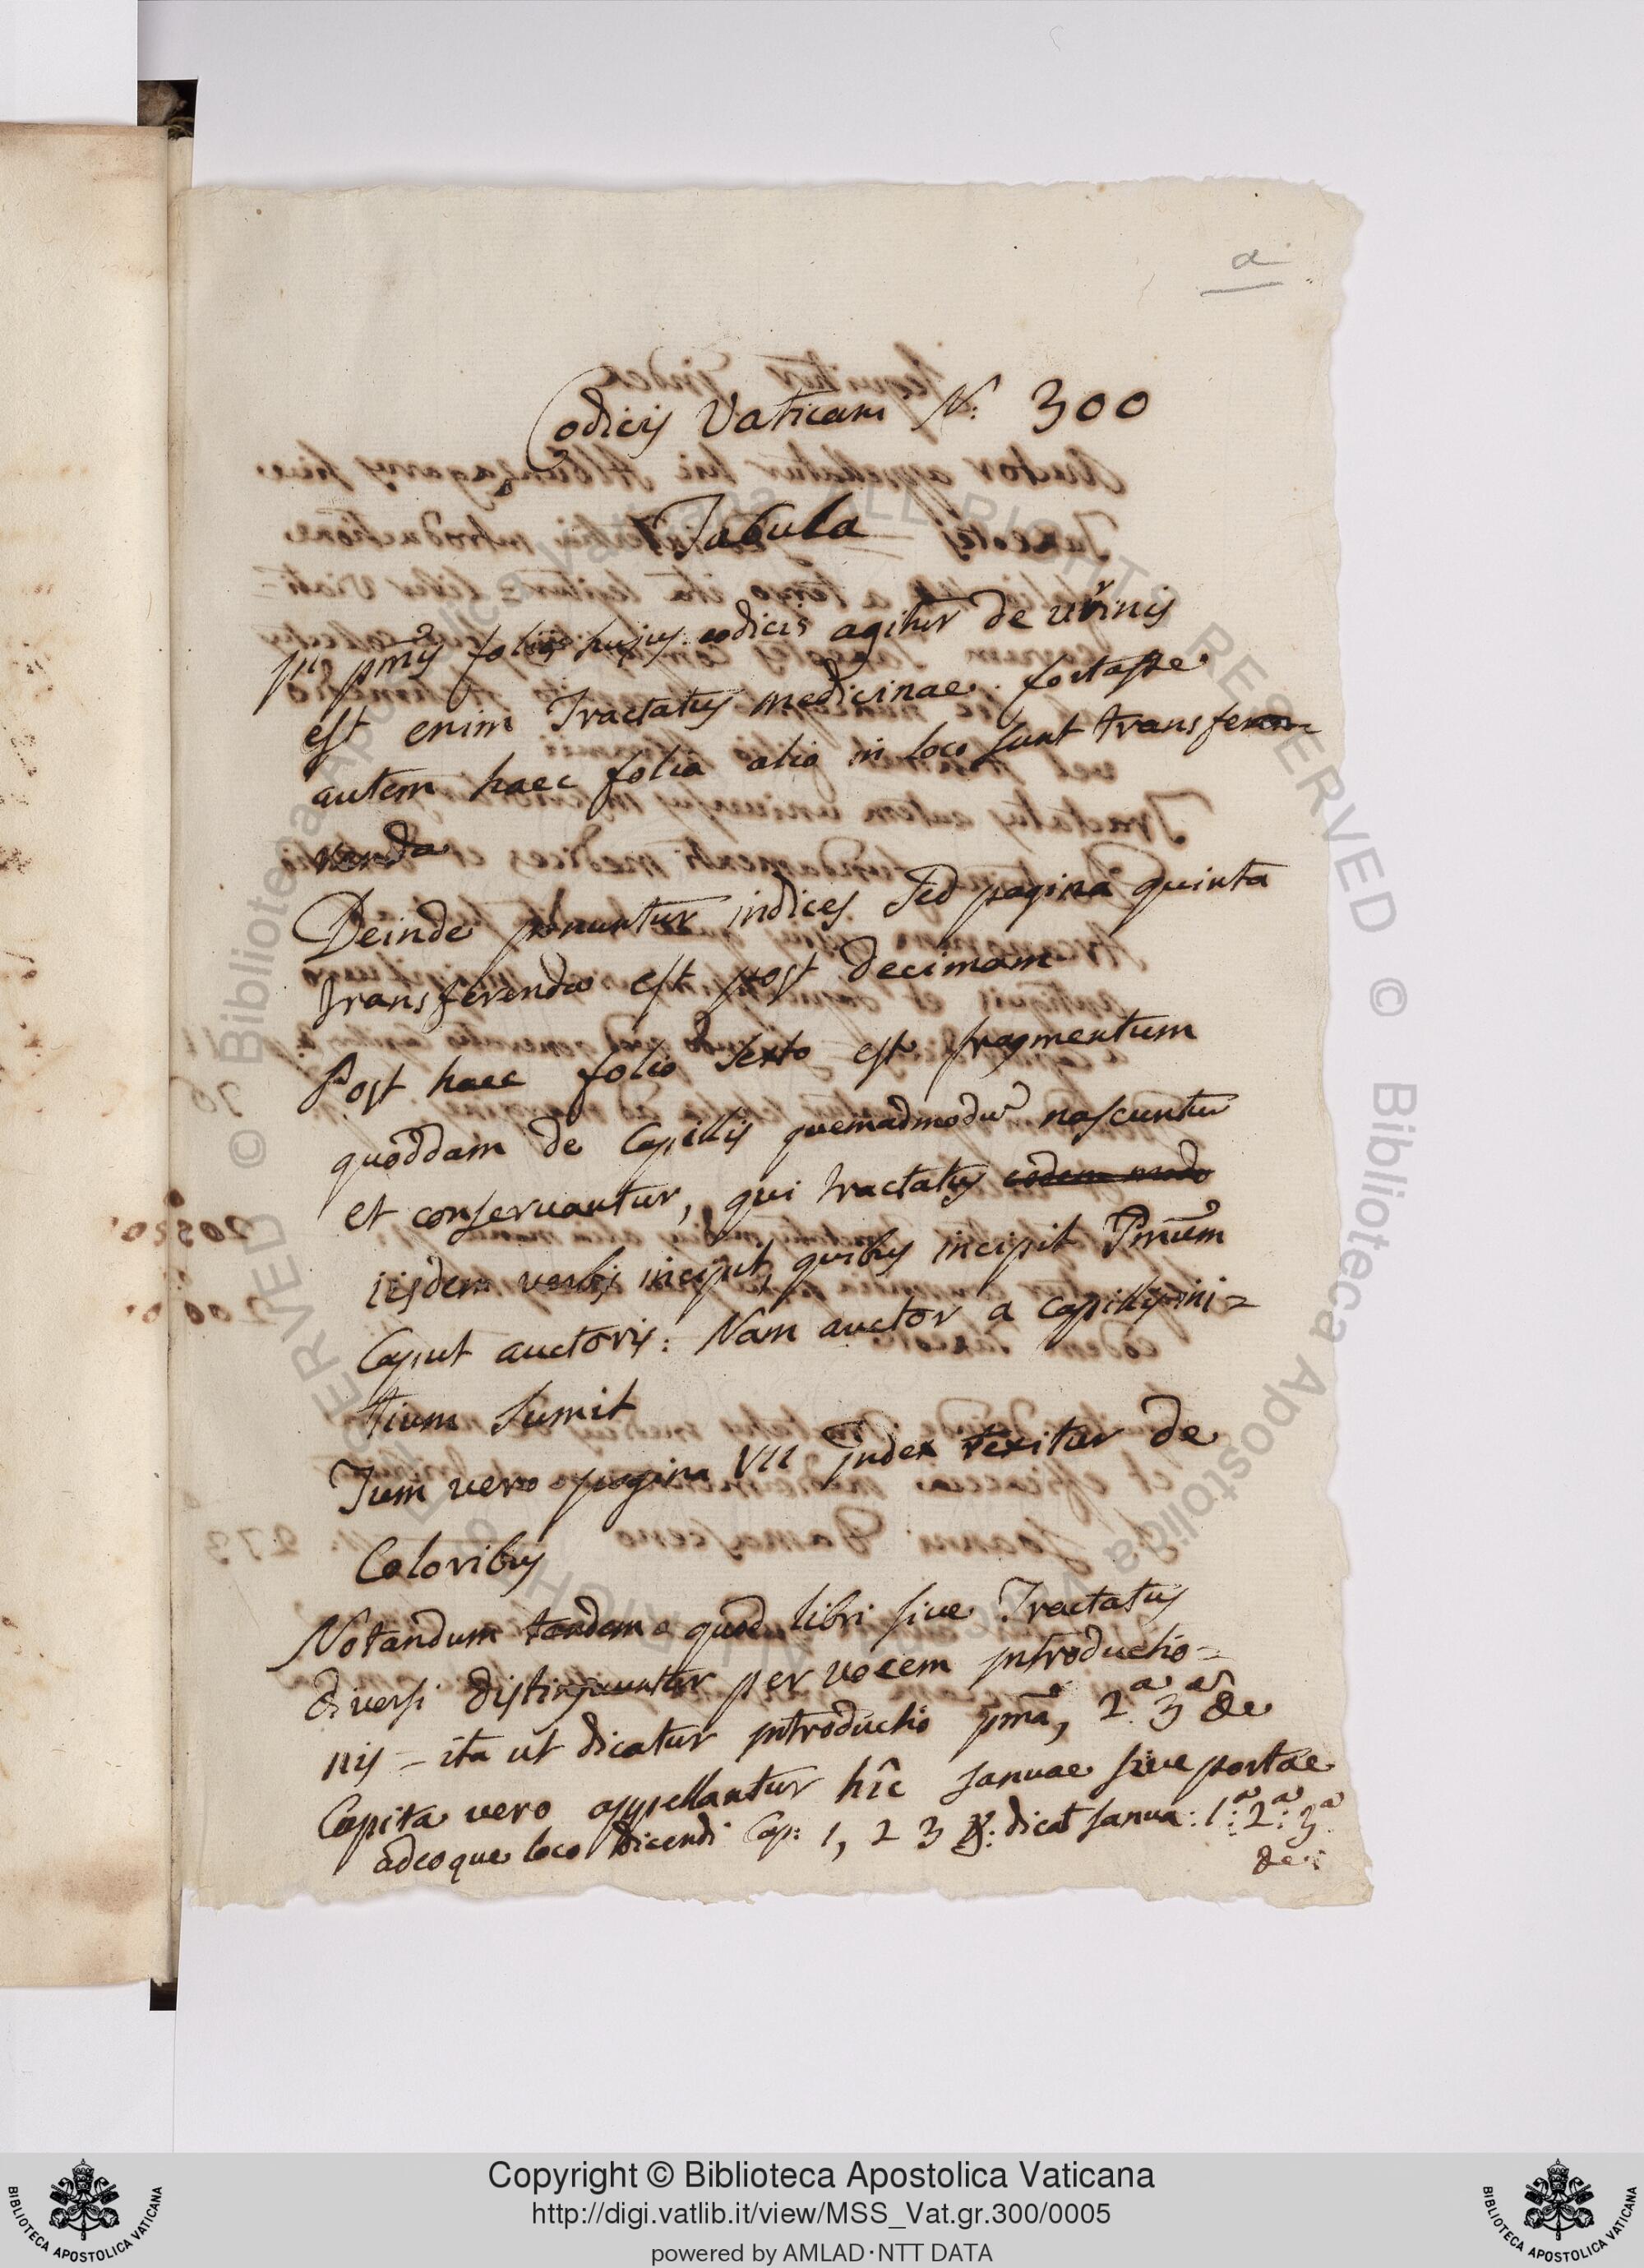 a
Codicis Vaticani N. 300
Tabula
In pmis folijs hujus codicis agitur de urinis
est enim Tractatus medicinae. fortasse
autem haec folia alio in loco sunt transfere=
renda
Deinde ponuntur indices sed pagina quinta
transferenda est post decimam
Post haec folio sexto est fragmentum
quoddam de Capillis quemadmodu nascuntur
et conservantur, qui tractatus eodem modo
iisdem verbis incipit, quibus incipit Pmum
Caput auctoris: Nam auctor a capillis ini=
tium sumit
Tum vero pagina VII Index texitur de
Coloribus
Notandum tandem quod libri sive Tractatus
diversi distinguuntur per vocem introductio=
nis = ita ut dicatur introductio pma, 2a 3a &c
Capita vero appellantur hîc Januae sive portae
adeoque loco dicendi Cap: 1, 2 3 &: dicat Janua: 1a: 2a: 3a
&c:
Copyright © Biblioteca Apostolica Vaticana
http://digi.vatlib.it/view/MSS_Vat.gr.300/0005
powered by AMLAD·NTT DATA
BIBLIOTECA APOSTOLICA VATICANA
BIBLIOTECA APOSTOLICA VATICANA